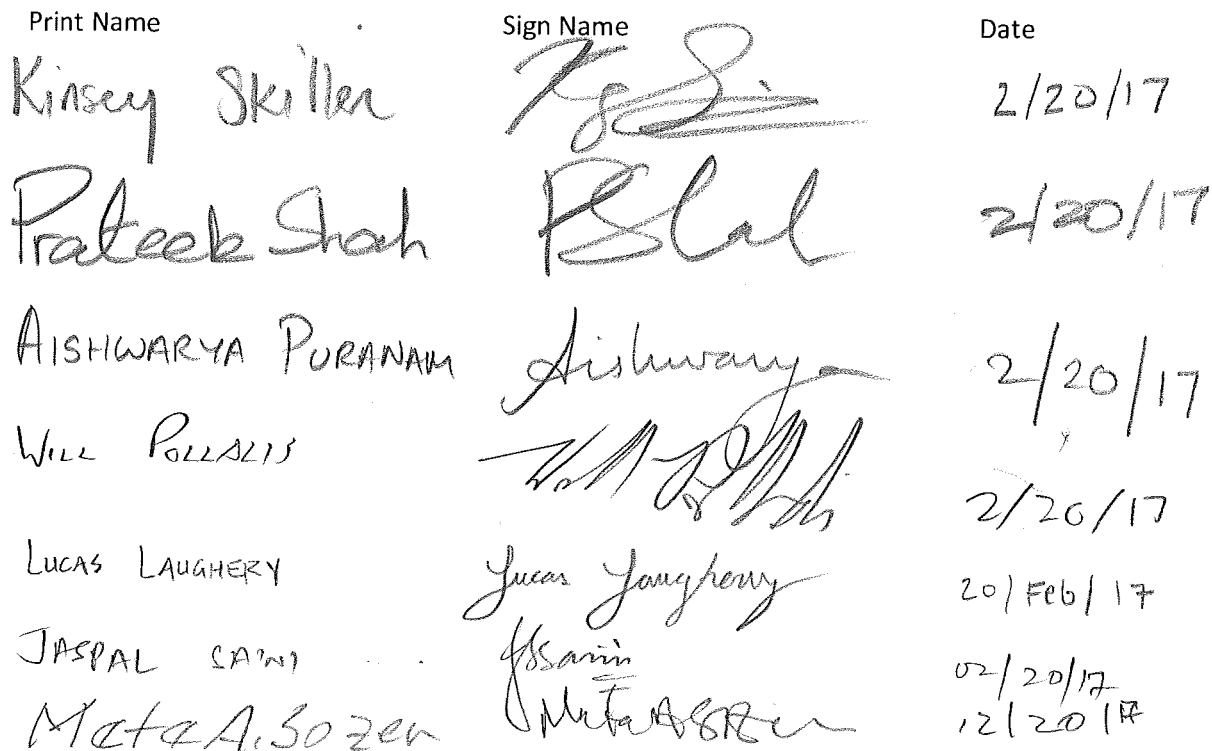 Print Name Sign Name Date
Kinsey Skillen 2/20/17
Prateek Shah PShah 2/20/17
AISHWARYA PURANAM Aishwarya 2/20/17
WILL POLLALIS 2/20/17
LUCAS LAUGHERY Lucas Laughery 20/Feb/17
JASPAL SAINI JSSaini 02/20/17
Mete A. Sozen Mete A Sozen 12/20/17